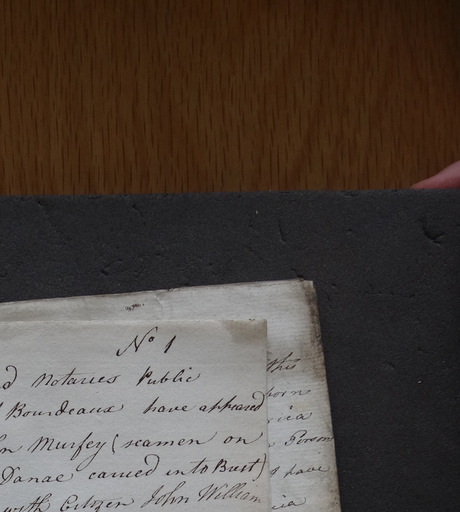 No 1
d Notaries Public
Bourdeaux have appeared
n Murfey (seamen on
Danae carried into Brest)
with Citizen John William
this
born
rica
Person
have
rica